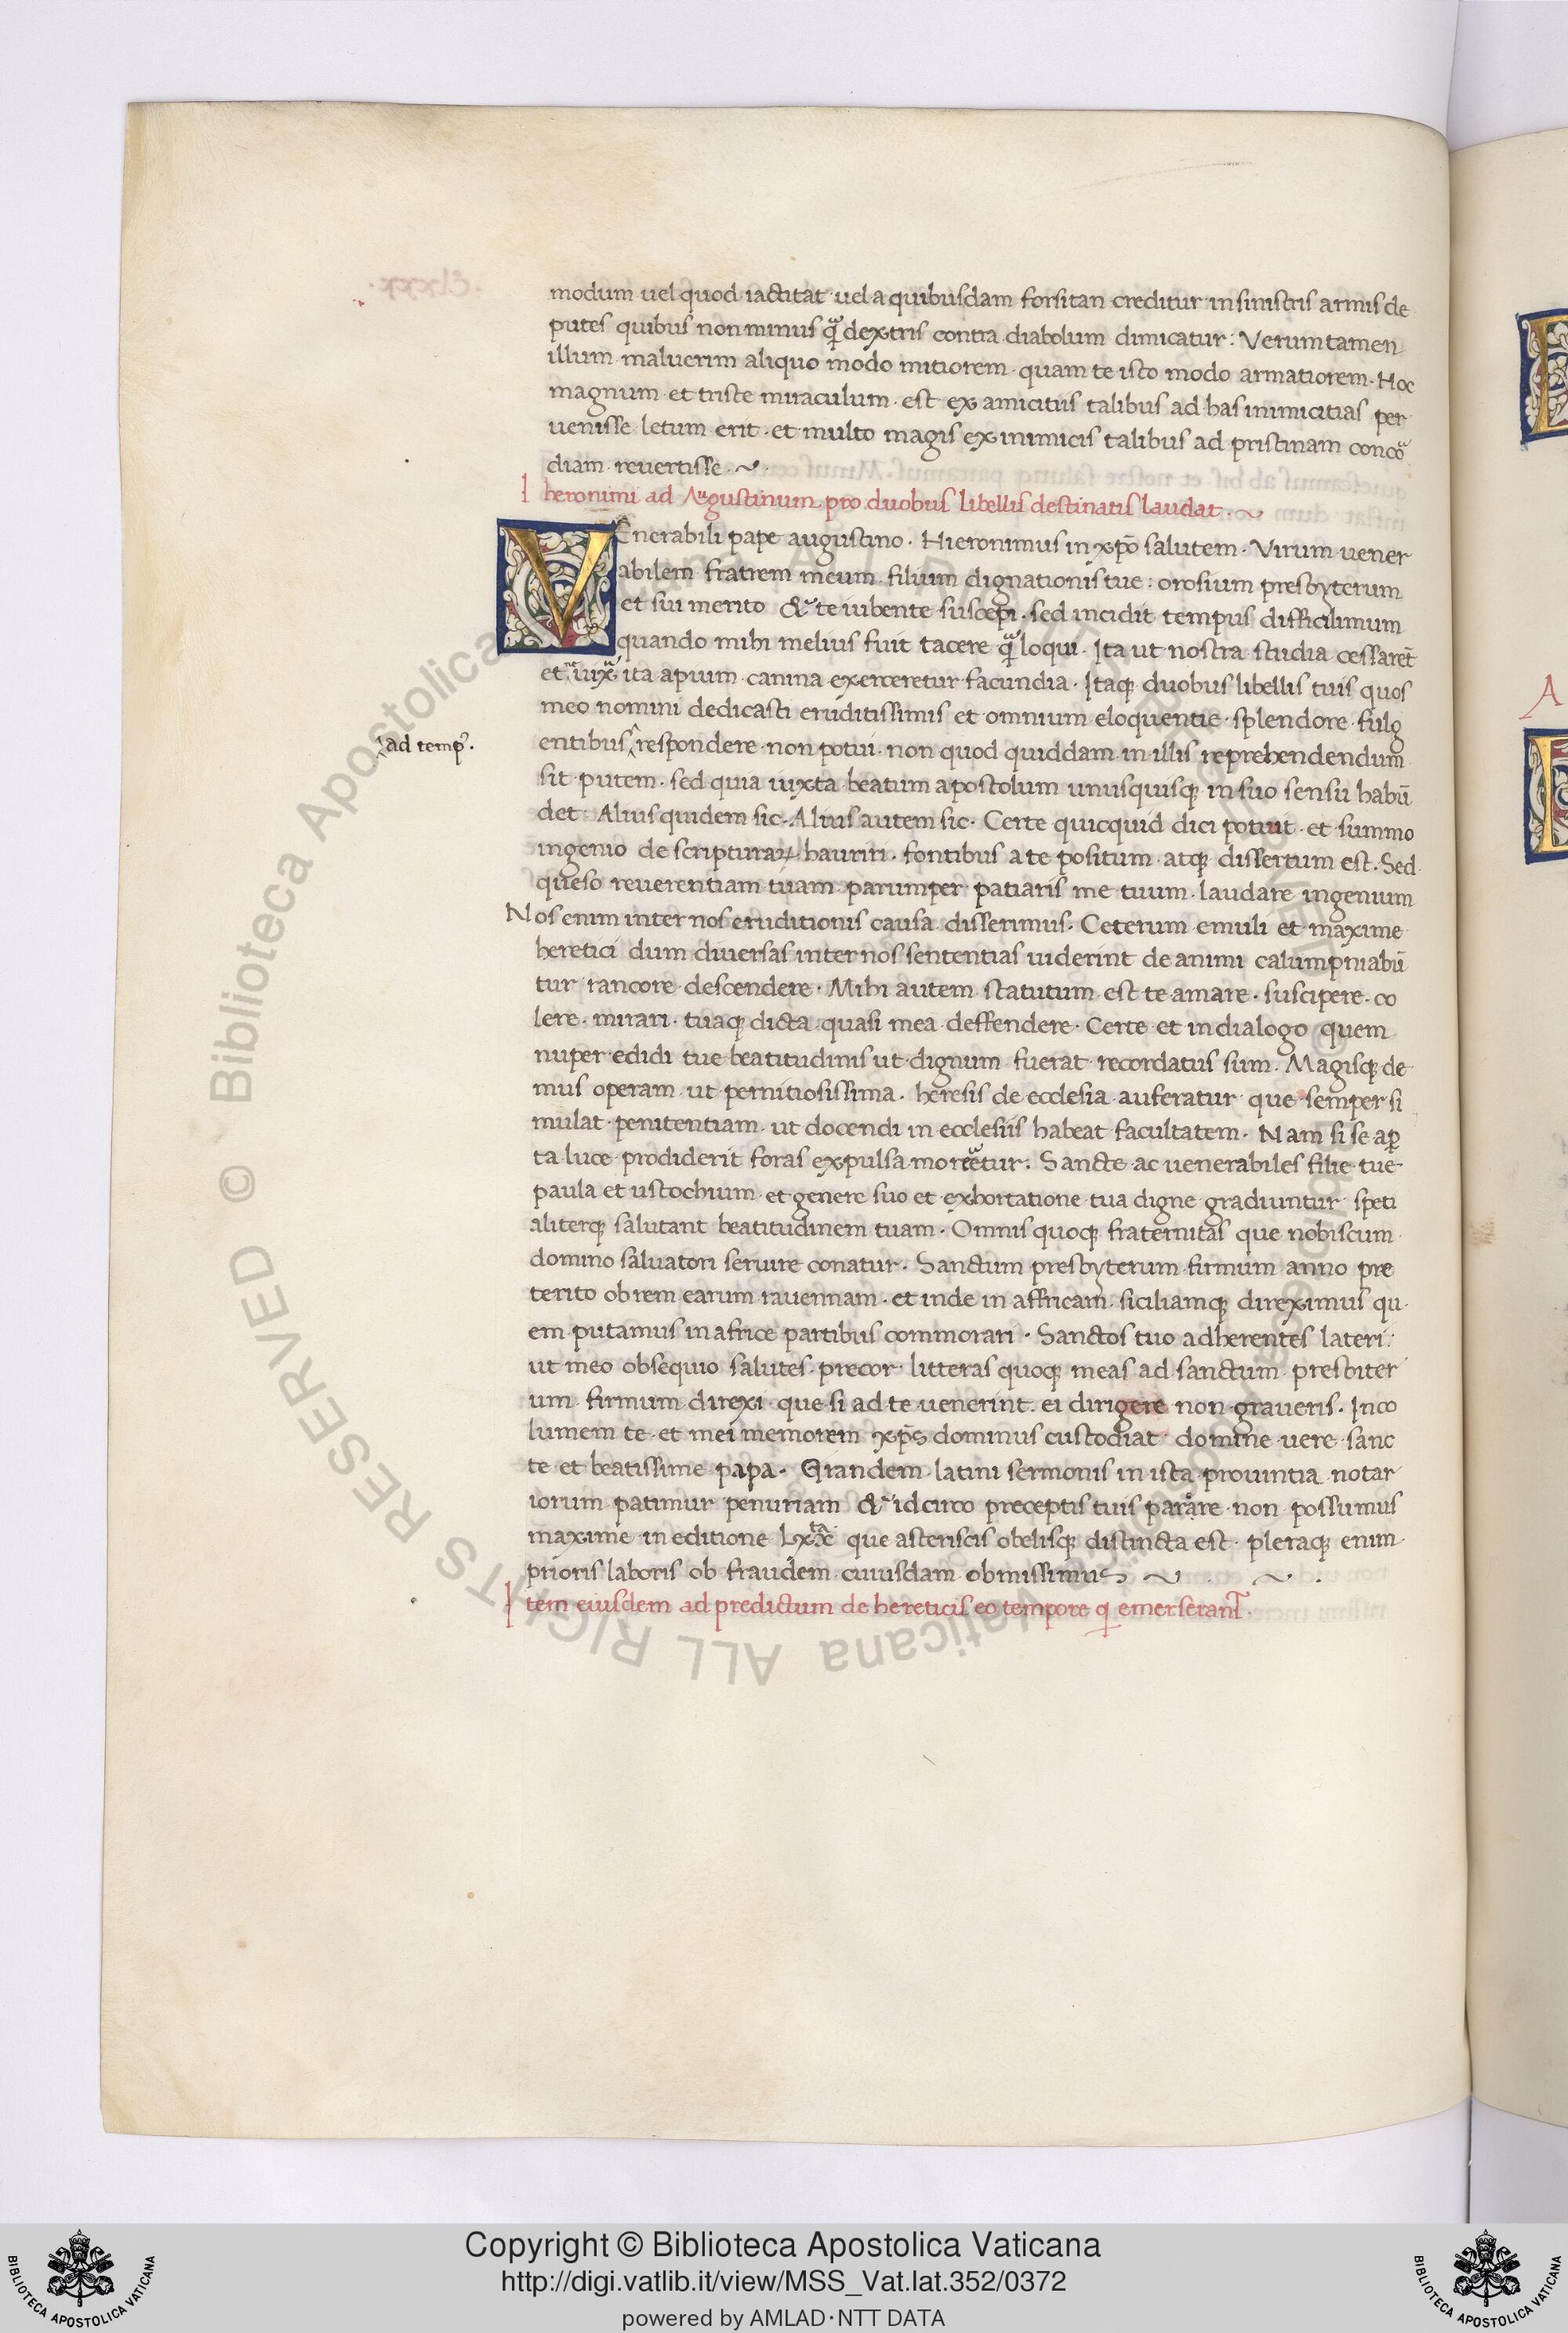 modum uel quod iactitat uel a quibusdam forsitan creditur in sinistris armis de
putes quibus non minus q̃ dextris contra diabolum dimicatur : Verum tamen
illum maluerim aliquo modo mitiorem · quam te isto modo armatiorem · Hoc
magnum et triste miraculum est ex amicitiis talibus ad has inimicitias per
uenisse letum erit · et multo magis ex inimicis talibus ad pristinam conco
diam revertisse ·
Iheronimi ad Augustinum pro duobus libellis destinatis laudat ·
VEnerabili pape augustino · Hieronimus in xp̃o salutem · Virum uener
abilem fratrem meum filium dignationis tue : orosium presbyterum
et sui merito & te iubente suscepi · sed incidit tempus difficilimum
quando mihi melius fuit tacere q̃ loqui · Ita ut nostra studia cessarēt
et iux ita apium canina exerceretur facundia · Itaq; duobus libellis tuis quos
meo nomini dedicasti eruditissimis et omnium eloquentie splendore fulg
entibus respondere non potui · non quod quiddam in illis reprehendendum
ad temp⁹ ·
sit putem · sed quia iuxta beatum apostolum unusquisq; in suo sensu habū
det Alius quidem sic · Alius autem sic · Certe quicquid dici potuit · et summo
ingenio de scripturaꝝ hauriri · fontibus a te positum atq; dissertum est · Sed
queso reuerentiam tuam parumper patiaris me tuum laudare ingenium
Nos enim inter nos eruditionis causa disserimus · Ceterum emuli et maxime
heretici dum diuersas inter nos sententias uiderint de animi calumpniabū
tur rancore descendere · Mihi autem statutum est te amare · suscipere · co
lere · mirari · tuaq; dicta quasi mea deffendere · Certe et in dialogo quem
nuper edidi tue beatitudinis ut dignum fuerat recordatus sum · Magisq; de
mus operam ut pernitiosissima · heresis de ecclesia auferatur que semper si
mulat penitentiam · ut docendi in ecclesiis habeat facultatem · Nam si se aꝑ
ta luce prodiderit foras expulsa moretur · Sancte ac uenerabiles filie tue
paula et ustochium et genere suo et exhortatione tua digne gradiuntur speti
aliterq; salutant beatitudinem tuam · Omnis quoq; fraternitas que nobiscum
domino saluatori seruire conatur · Sanctum presbyterum firmum anno pre
terito ob rem earum rauennam · et inde in affricam siciliamq; direximus qu
em putamus in africe partibus commorari · Sanctos tuo adherentes lateri :
ut meo obsequio salutes precor litteras quoq; meas ad sanctum presbiter
um firmum direxi que si ad te uenerint ei dirigere non graueris · Inco
lumem te et mei memorem xp̃s dominus custodiat domine uere sanc
te et beatissime papa · Grandem latini sermonis in ista prouintia notar
iorum patimur penuriam & idcirco preceptis tuis parare non possumus
maxime in editione Lxx que asteriscis obelisq; distincta est · pleraq; enim
prioris laboris ob fraudem cuiusdam obmissimus
Item eiusdem ad predictum de hereticis eo tempore q̃ emerserant ·
A
Copyright © Biblioteca Apostolica Vaticana
http://digi.vatlib.it/view/MSS_Vat.lat.352/0372
powered by AMLAD·NTT DATA
BIBLIOTECA APOSTOLICA VATICANA
BIBLIOTECA APOSTOLICA VATICANA
© Biblioteca Apostolica Vaticana ALL RIGHTS RESERVED